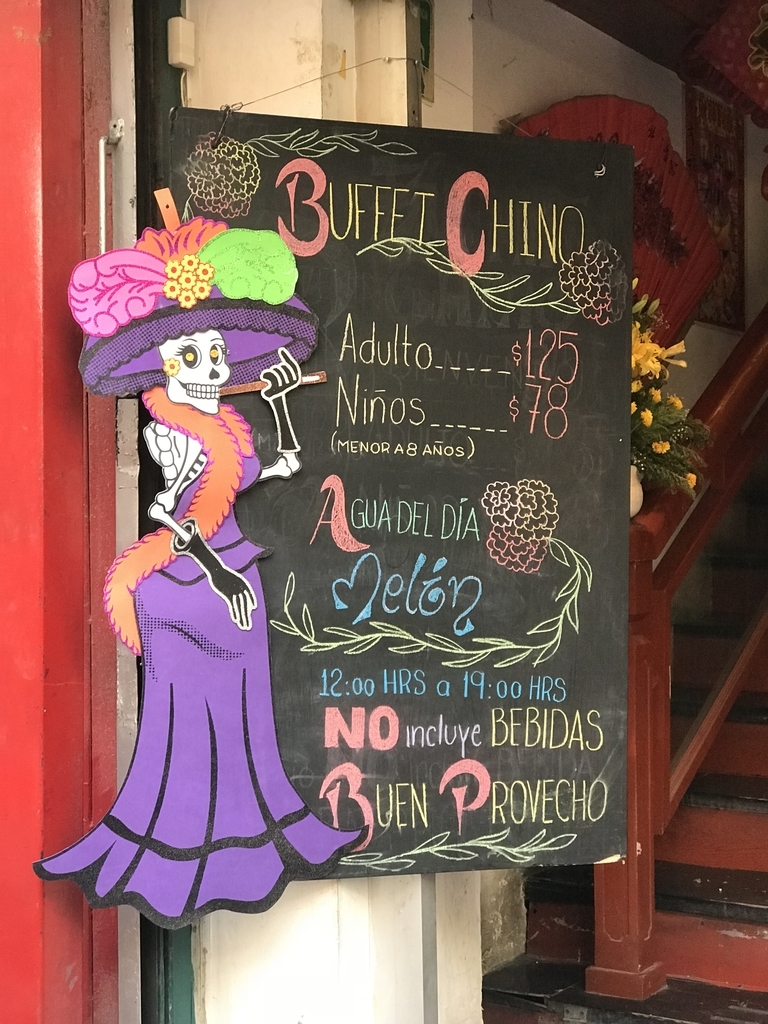 BUFFET CHINO
Adulto_____$125
Niños______$78
(MENOR A 8 AÑOS)
AGUA DEL DÍA
Melón
12:00 HRS a 19:00 HRS
NO incluye BEBIDAS
BUEN PROVECHO